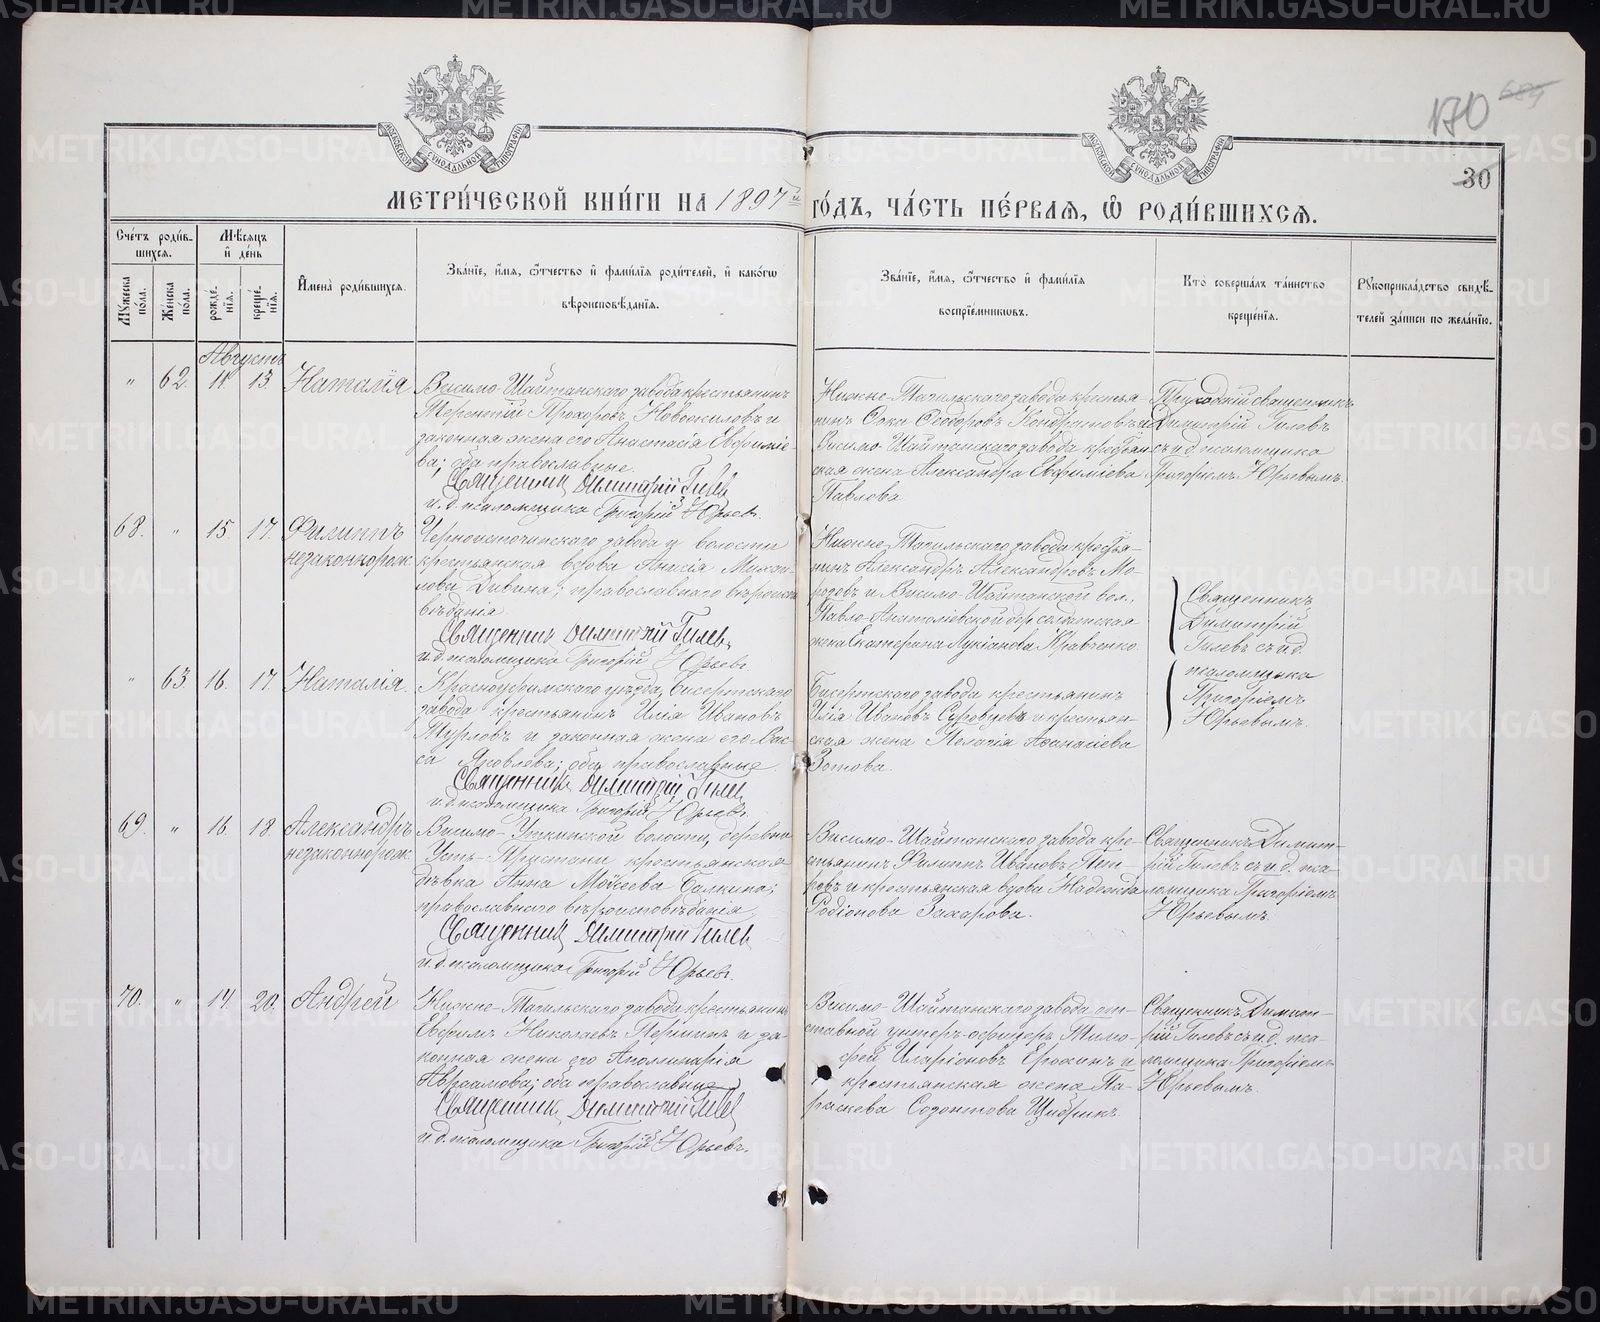 170 689
30
МОСКОВСКОЙ СѴНОДАЛЬНОЙ ТИПОГРАФІИ
МОСКОВСКОЙ СѴНОДАЛЬНОЙ ТИПОГРАФІИ
МЕТРИ́ЧЕСКОЙ КНИ́ГИ НА 1897й ГО́ДЪ, ЧА́СТЬ ПЕ́РВАЯ, Ѽ РОДИ́ВШИХСЯ.
Сче́тъ роди́в-
шихся.
Му́жеска по́ла.
Же́нска по́ла.
Мѣ́сяцъ
и де́нь
рожде́нїя.
креще́нїя.
Имена̀ роди́вшихся.
Зва́нїе, и́мя, ѻ҆́тчество и фами́лїя роди́телей, и како́гѡ
вѣроисповѣ́данїя.
Зва́нїе, и́мя, ѻ҆́тчество и фами́лїя
воспрїе́мниковъ.
Кто̀ соверша́лъ та́инство
креще́нїя.
Рукоприкла́дство свидѣ́-
телей за́писи по жела́нїю.
Августъ
" 62. 11. 13 Наталія
Висимо-Шайтанскаго завода крестьянинъ
Терентій Прохоровъ Новожиловъ и
законная жена его Анастасія Евфиміе-
ва; оба православные.
Священник Димитрій Гилев
и.д. псаломщика Григорій Юрьевъ.
Нижне-Тагильскаго завода крестья-
нинъ Сока Ѳеодоровъ Кондратовъ и
Висимо-Шайтанскаго завода крестьян-
ская жена Александра Евфиміева
Павлова
Приходскій священникъ
Димитрій Гилевъ
съ и.д. псаломщика
Григоріемъ Юрьевымъ.
68. " 15. 17. Филиппъ
незаконнорож.
Черноисточинскаго завода и волости
крестьянская вдова Анисія Михаи-
лова Дивина; православнаго вѣроиспо
вѣданія
Священник Димитрій Гилев
и.д. псаломщика Григорій Юрьевъ
Нижне-Тагильскаго завода крестья-
нинъ Александръ Александровъ Мо-
розовъ и Висимо-Шайтанской вол.,
Павло-Анатоліевской дер. солдатская
жена Екатерина Лукіанова Кравченко.
Священникъ
Димитрій
Гилевъ съ и.д.
псаломщика
Григоріемъ
Юрьевымъ.
" 63. 16. 17 Наталія.
Красноуфимскаго уѣзда, Бисертскаго
завода крестьянинъ Илія Ивановъ
Турловъ и законная жена его Вас-
са Яковлева; оба православные.
Священник Димитрій Гилев
и.д. псаломщика Григорій Юрьевъ.
Бисертскаго завода крестьянинъ
Илія Ивановъ Суровцевъ и крестьян-
ская жена Пелагія Аѳанасіева
Зотова.
69. " 16. 18. Александръ
незаконнорож.
Висимо-Уткинской волости, деревни
Усть-Пристани крестьянская
дѣвка Анна Моѵсеева Балкина;
православнаго вѣроисповѣданія
Священник Димитрій Гилев
и.д. псаломщика Григорій Юрьевъ.
Висимо-Шайтанскаго завода кре-
стьянинъ Филиппъ Ивановъ Пет-
ровъ и крестьянская вдова Надежда
Родіонова Захарова.
Священникъ Димит-
рій Гилевъ съ и.д. пса-
ломщика Григоріемъ
Юрьевымъ.
70. " 14. 20. Андрей
Нижне-Тагильскаго завода крестьянинъ
Евфимъ Николаевъ Першинъ и за-
конная жена его Аполлинарія
Авраамова; оба православные
Священник Димитрій Гилев
и.д. псаломщика Григорій Юрьевъ.
Висимо-Шайтанскаго завода от-
ставной унтеръ-офицеръ Тимо-
фей Иларіоновъ Ерохинъ и
крестьянская жена Па-
раскева Созонтова Щибрикъ.
Священникъ Димит-
рій Гилевъ съ и.д. пса-
ломщика Григоріемъ
Юрьевымъ.
METRIKI.GASO-URAL.RU